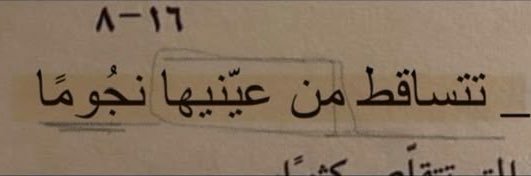 ٨-١٦
_ تتساقط من عيّنيها نجُومًا